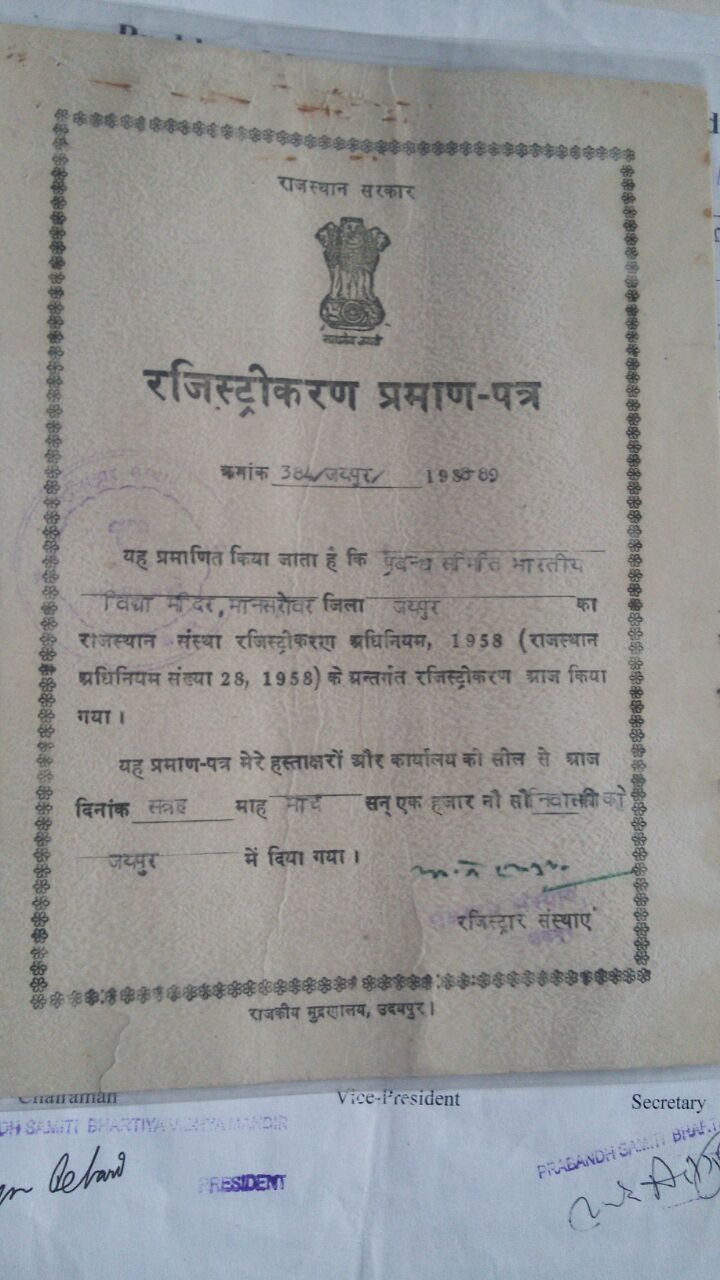 राजस्थान सरकार
सत्यमेव जयते
रजिस्ट्रीकरण प्रमाण-पत्र
क्रमांक 384/जयपुर/ 1988-89
यह प्रमाणित किया जाता है कि प्रबन्ध समिति भारतीय
विद्या मंदिर, मानसरोवर जिला जयपुर का
राजस्थान संस्था रजिस्ट्रीकरण अधिनियम, 1958 (राजस्थान
अधिनियम संख्या 28, 1958) के अन्तर्गत रजिस्ट्रीकरण आज किया
गया।
यह प्रमाण-पत्र मेरे हस्ताक्षरों और कार्यालय की सील से आज
दिनांक सत्रह माह मार्च सन् एक हजार नौ सौ नवासी को
जयपुर में दिया गया।
रजिस्ट्रार संस्थाएं
राजकीय मुद्रणालय, उदयपुर।
Chairaman Vice-President Secretary
DH SAMITI BHARTIYA VIDHYA MANDIR
PRABANDH SAMITI BHARTI
PRESIDENT